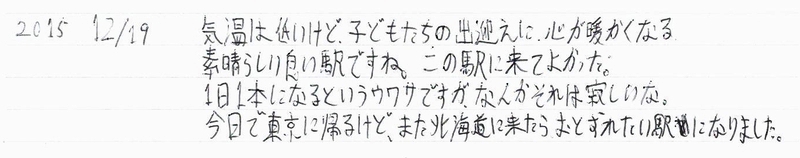 2015 12/19 気温は低いけど、子どもたちの出迎えに、心が暖かくなる
素晴らしい良い駅ですね。この駅に来てよかった。
1日1本になるというウワサですが、なんかそれは寂しいな。
今日で東京に帰るけど、また北海道に来たらおとずれたい駅になりました。